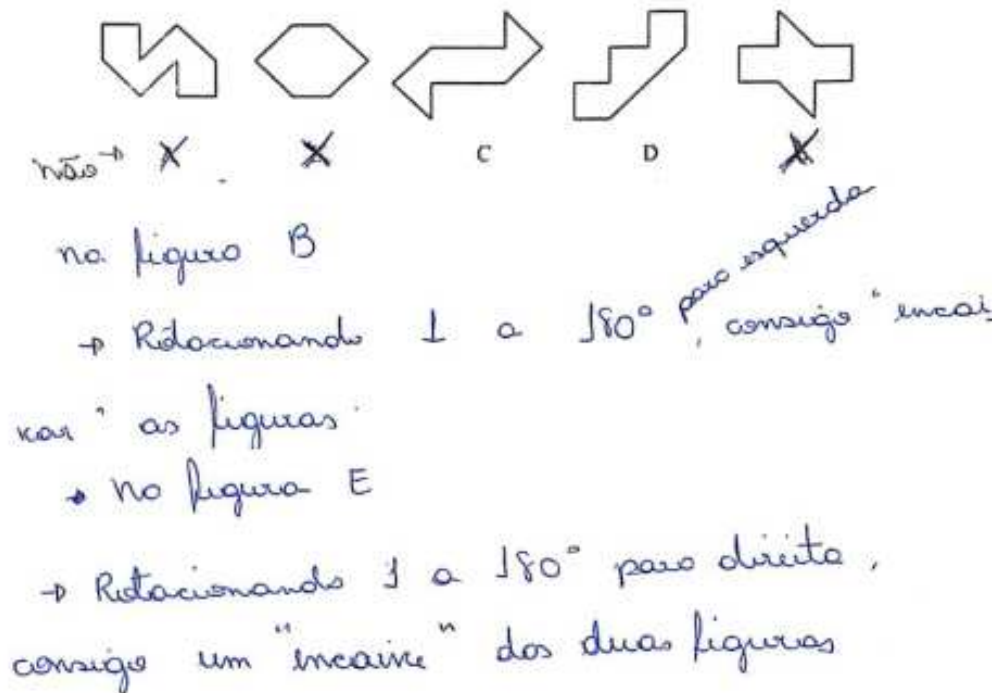 C D
não →
na figura B
→ Rotacionando 1 a 180° para esquerda, consigo "encai
xar" as figuras.
→ na figura E
→ Rotacionando 1 a 180° para direita,
consigo um "encaixe" das duas figuras